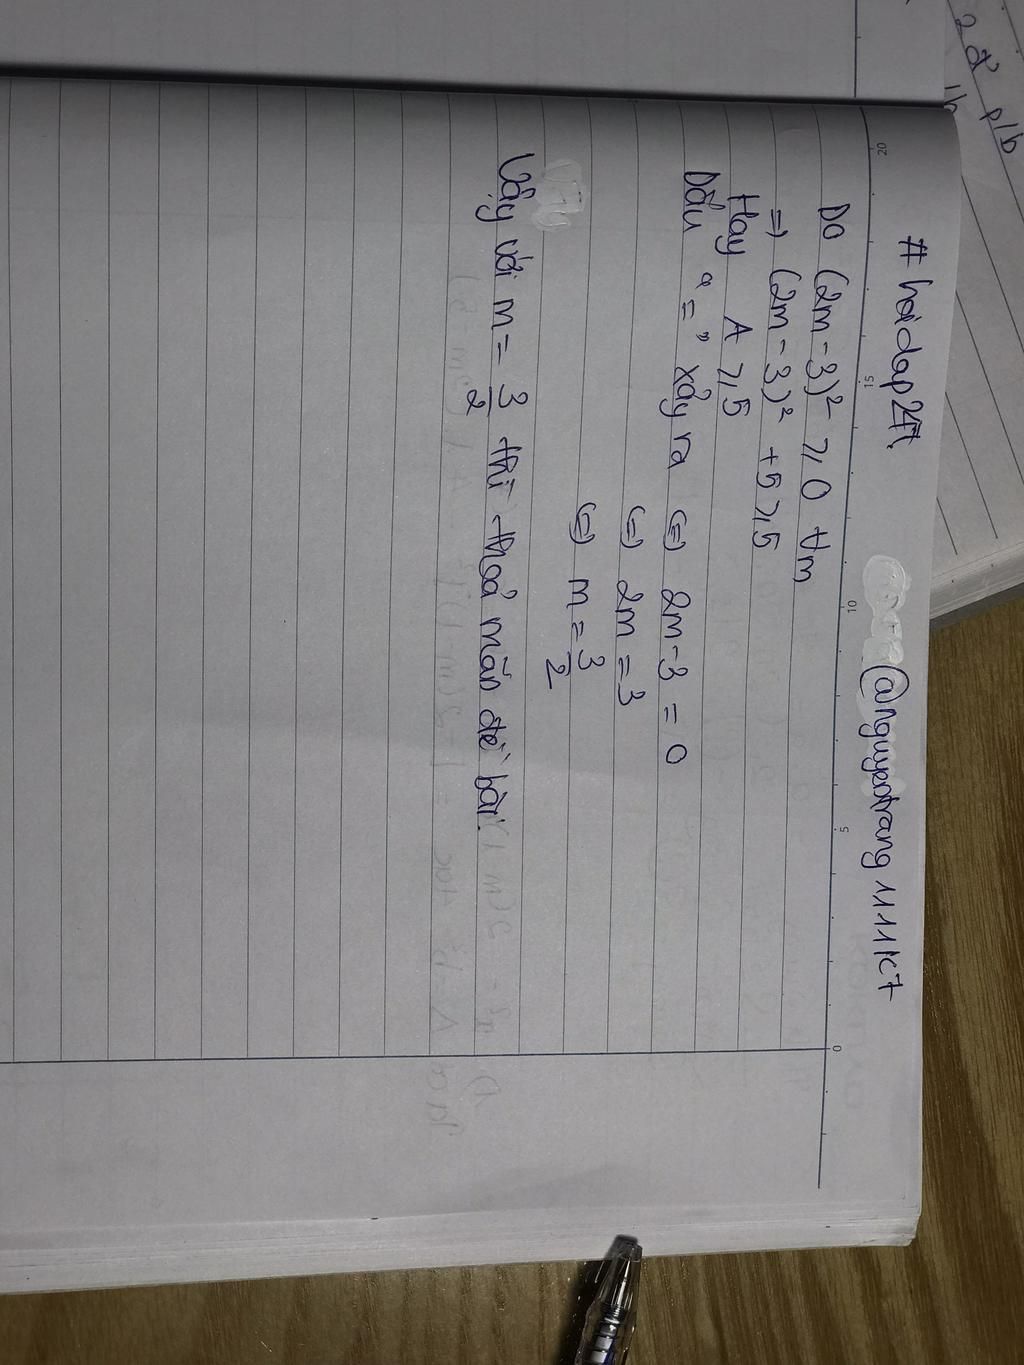 #hoidap247.
@nguyentrang1111k7
Do (2m-3)² ≥ 0 ∀m
=> (2m-3)² + 5 ≥ 5
Hay A ≥ 5
Dấu "=" xảy ra (=) 2m-3 = 0
(=) 2m = 3
(=) m = 3/2
Vậy với m = 3/2 thì thoả mãn đề bài.
20
15
10
5
0
2đ
p/b